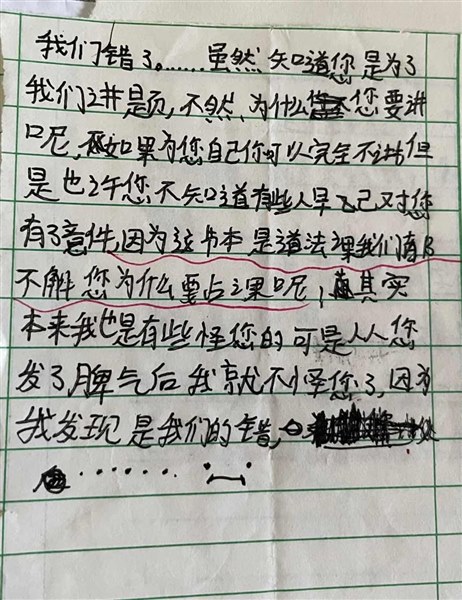 我们错了。......虽然知道您是为了
我们讲题,不然为什么您要讲
呢,如果为您自己你可以完全不讲但
是也许您不知道有些人早已对您
有了意件,因为这书本是道法课我们有
不解您为什么要占课呢,其实
本来我也是有些怪您的可是从您
发了脾气后我就不怪您了,因为
我发现是我们的错,
......